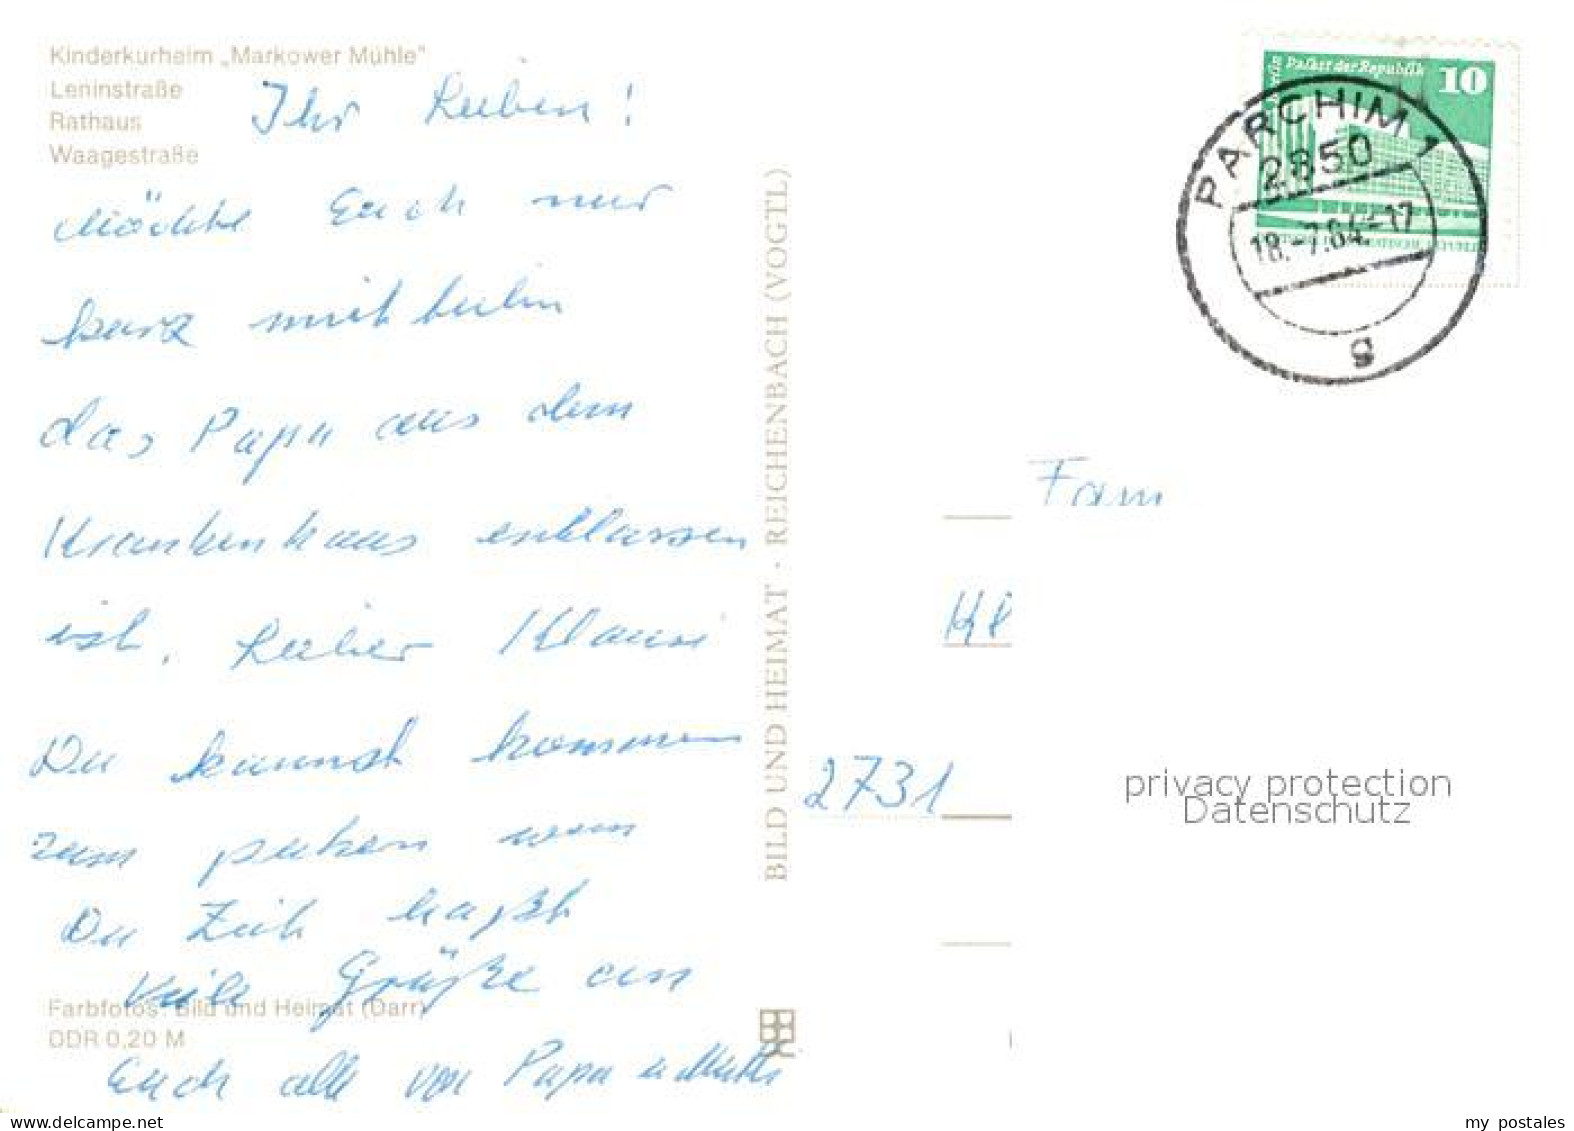 Kinderkurheim „Markower Mühle"
Leninstraße
Rathaus
Waagestraße
Ihr Lieben!
Möchte Euch nur
kurz mitteilen
das Papa aus dem
Krankenhaus entlassen
ist. Lieber Klausi
Du kannst kommen
zum wenn
Du Zeit haßt
Viele Grüße an
Euch alle von Papa u Mutti
Farbfotos: Bild und Heimat (Darr)
DDR 0,20 M
BILD UND HEIMAT · REICHENBACH (VOGTL)
Berlin Palast der Republik 10
PARCHIM 1
2850
18.-7.84-17
s
Fam
Kl
2731
privacy protection
Datenschutz
delcampe.net
my postales